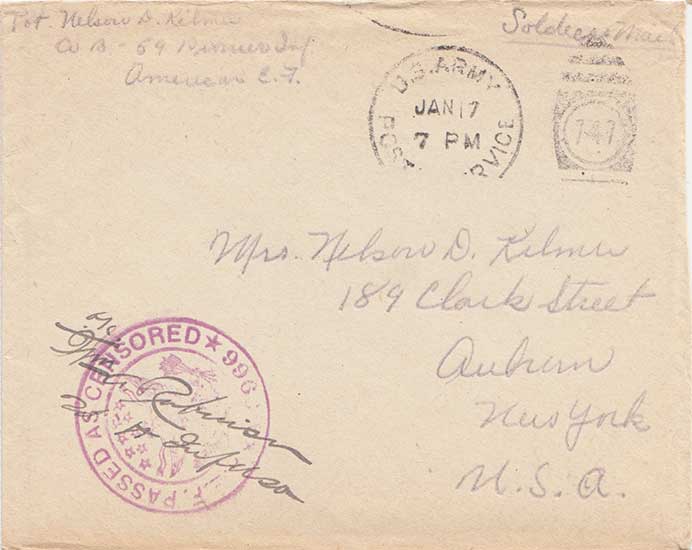 Pvt. Nelson D. Kilmer
Co B - 59 Pioneer Inf.
American E.F.
Soldiers Mail
U.S. ARMY
JAN 17
7 PM
POS SERVICE
747
Mrs. Nelson D. Kilmer
189 Clark Street
Auburn
New York
U.S.A.
PASSED AS CENSORED ★ 996
Robinson